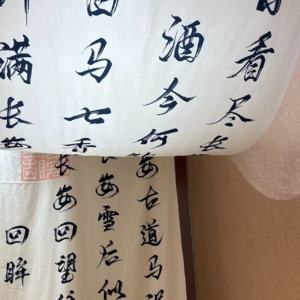 看尽长
酒今何
马七香
满长安
安古道马
长安雪后似
长安回望
回眸